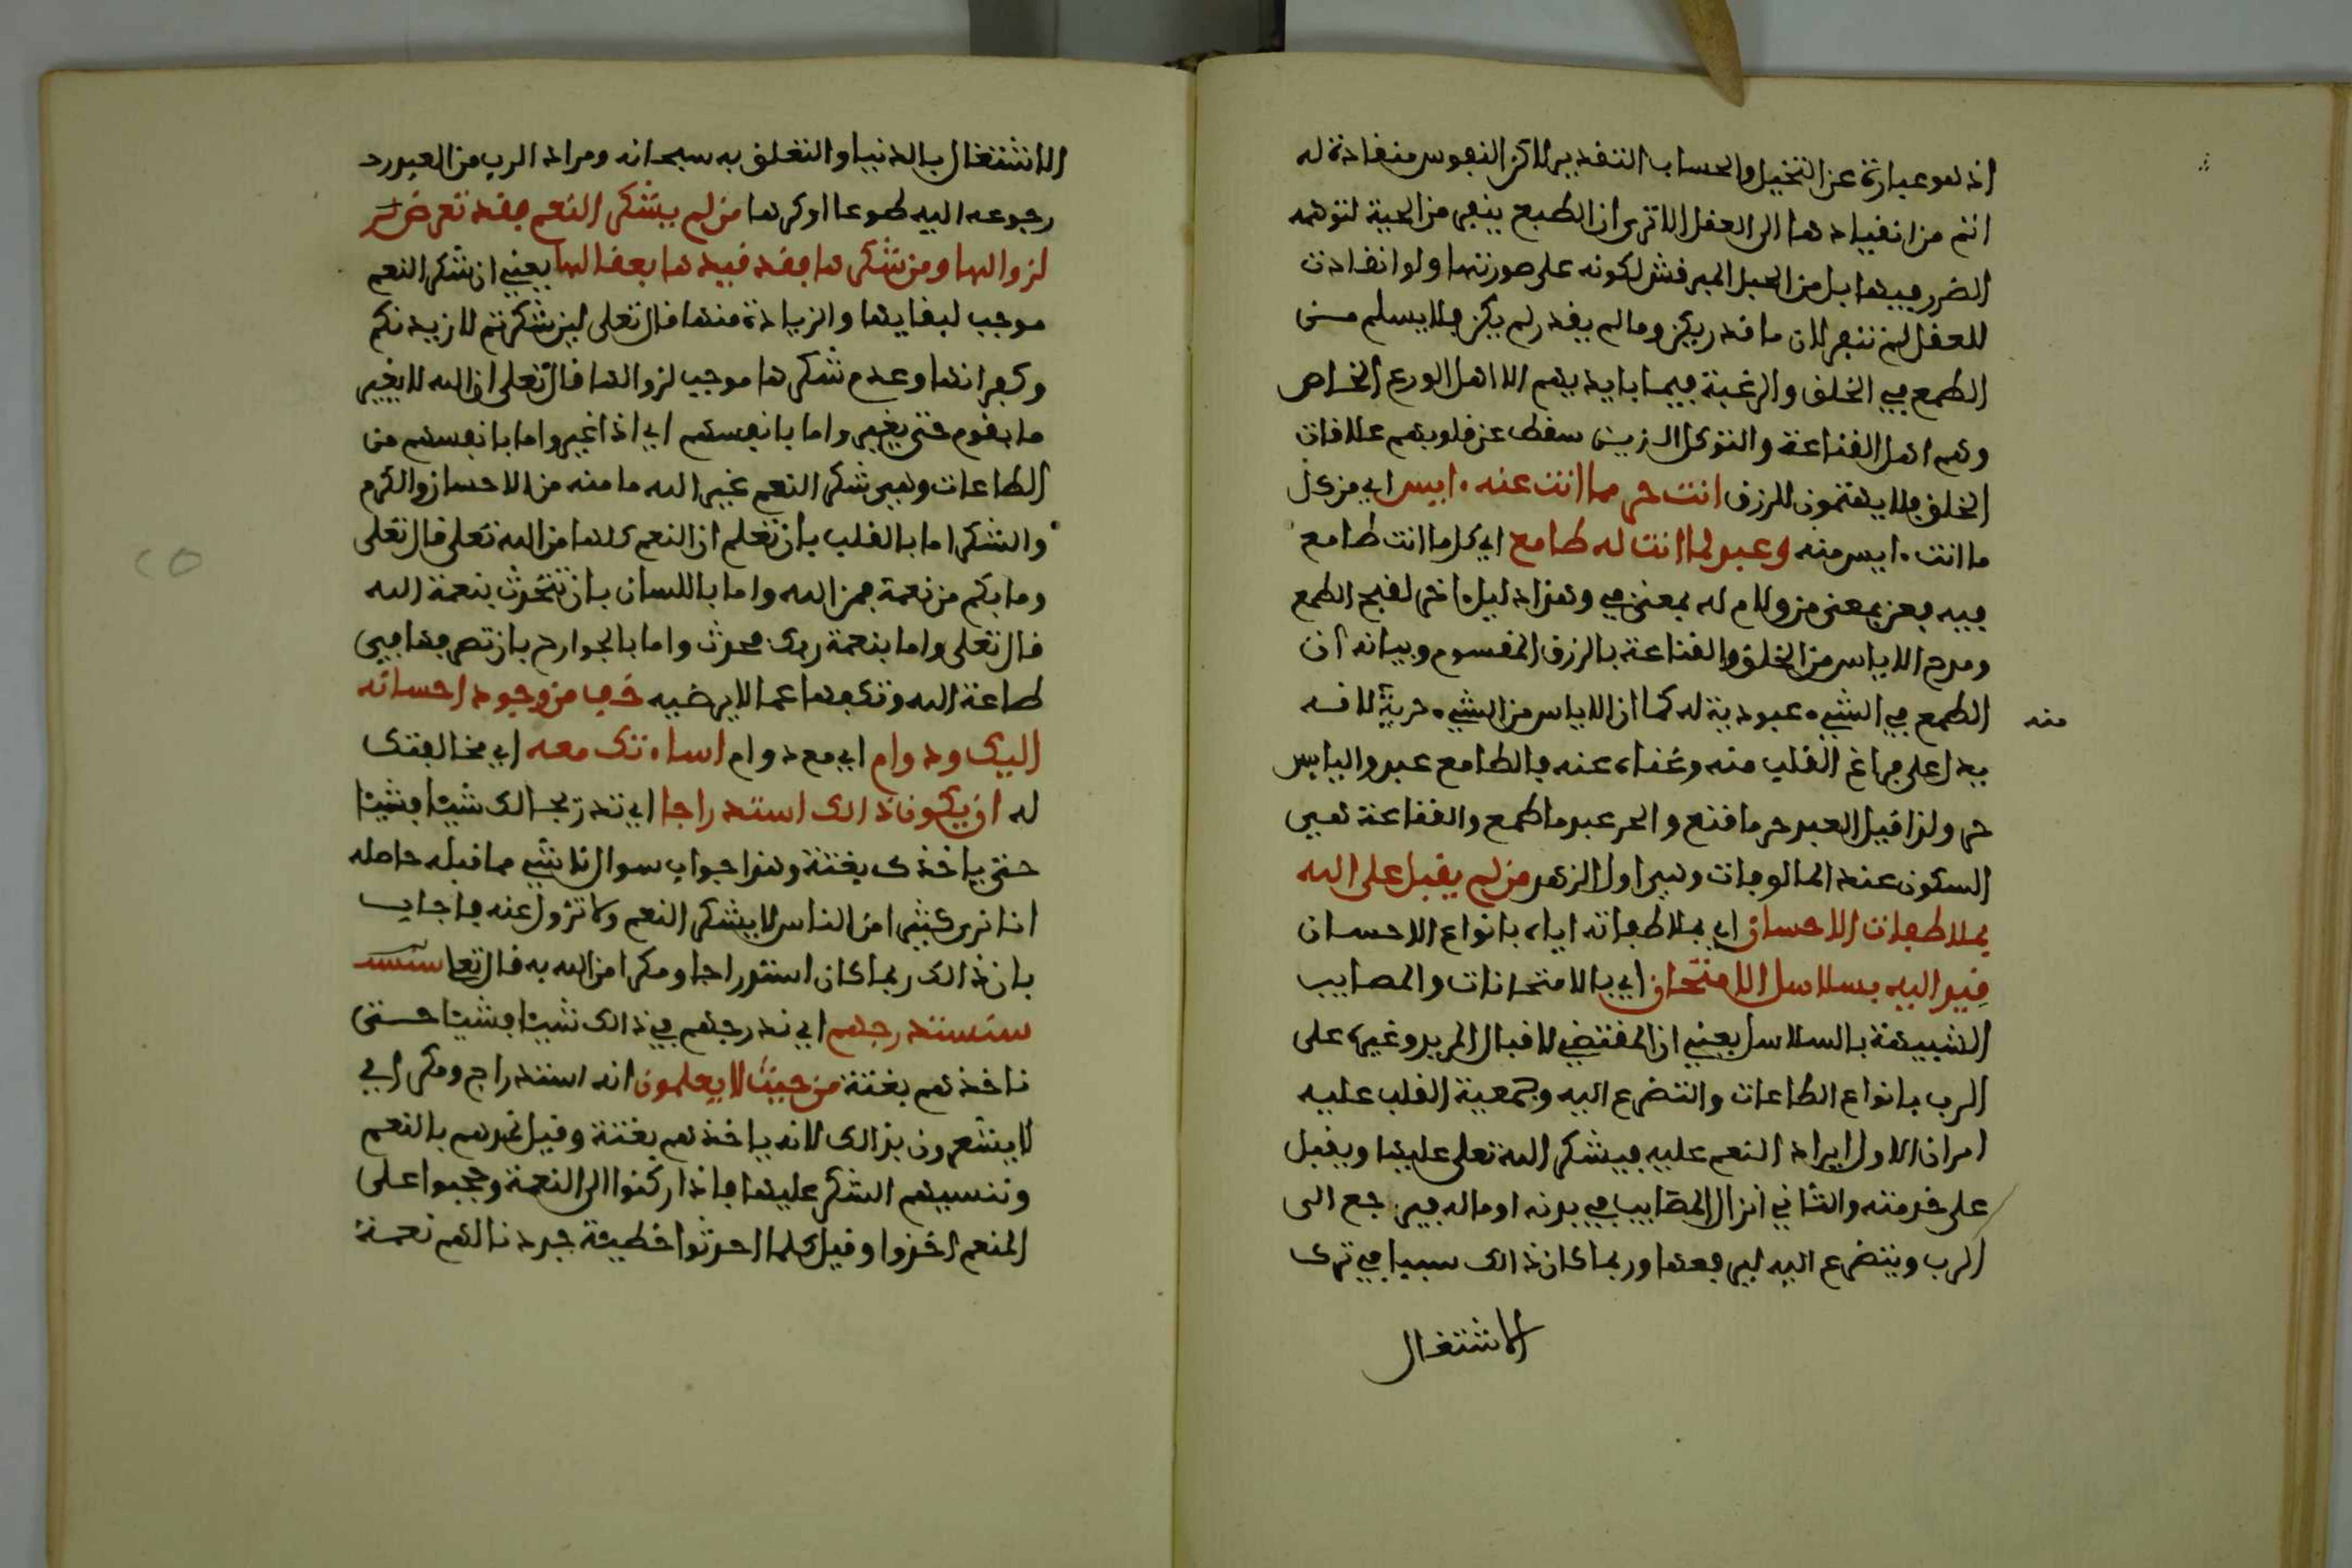 اذ هو عبارة عن التخيل والحساب التقديري لاكن النفوس منقادة له
اتم من انقيادها الى العقل الا ترى ان الطبع ينفر من الحية لتوهمه
الضرر فيها بل من الحبل المبرقش لكونه على صورتها ولو انقادت
للعقل لم تنفر لان ما قدر يكن وما لم يقدر لم يكن فلا يسلم من
الطمع في الخلق والرغبة فيما بايديهم الا اهل الورع الخاص
وهم اهل القناعة والتوكل الذين سقط عن قلوبهم علاقات
الخلق فلا يهتمون للرزق انت حر مما انت عنه ءايس اي من كل
ما انت ءايس منه وعبد لما انت له طامع اي كل ما انت طامع
فيه فعن بمعنى من ولام له بمعنى في وهذا دليل ءاخر لقبح الطمع
ومدح الاياس من الخلق والقناعة بالرزق المقسوم وبيانه ان
الطمع في الشيء عبودية له كما ان الاياس من الشيء حرية لانه منه
يدل على فراغ القلب منه وغناه عنه فالطامع عبد واليايس
حر ولذا قيل العبد حر ما قنع والحر عبد ما طمع والقناعة هي
السكون عند المالوفات وهي اول الزهد من لم يقبل على الله
بملاطفات الاحسان اي بملاطفاته اياه بانواع الاحسان
قيد اليه بسلاسل الامتحان اي بالامتحانات والمصايب
الشبيهة بالسلاسل يعني ان المقتضي لاقبال المريد وغيره على
الرب بانواع الطاعات والتضرع اليه وجمعية القلب عليه
امران الاول ايراد النعم عليه فيشكر الله تعلى عليها ويقبل
على خدمته والثاني انزال المصايب في بدنه او ماله فيرجع الى
الرب ويتضرع اليه ليرفعها وربما كان ذالك سببا في ترك
الاشتغال
الاشتغال بالدنيا والتعلق به سبحانه ومراد الرب من العبد
رجوعه اليه طوعا او كرها من لم يشكر النعم فقد تعرض
لزوالها ومن شكرها فقد قيدها بعقالها يعني ان شكر النعم
موجب لبقايها والزيادة منها قال تعلى لين شكرتم لازيدنكم
وكفرانها وعدم شكرها موجب لزوالها قال تعلى ان الله لا يغير
ما بقوم حتى يغيروا ما بانفسهم اي اذا غيروا ما بانفسهم من
الطاعات وهي شكر النعم غير الله ما منه من الاحسان والكرم
والشكر اما بالقلب بان تعلم ان النعم كلها من الله تعلى قال تعلى
وما بكم من نعمة فمن الله واما باللسان بان تتحدث بنعمة الله
قال تعلى واما بنعمة ربك فحدث واما بالجوارح بان تصرفها في
طاعة الله وتكفها عما لا يرضيه خف من وجود احسانه
اليك ودوام اي مع دوام اساءتك معه اي مخالفتك
له ان يكون ذالك استدراجا اي تدريجا لك شيئا فشيئا
حتى ياخذك بغتة وهذا جواب سوال ناشي مما قبله حاصله
انا نرى كثيرا من الناس لا يشكر النعم ولا تزول عنه فاجاب
بان ذالك ربما كان استدراجا ومكرا من الله به قال تعلى
سنستدرجهم اي ندرجهم في ذالك شيئا فشيئا حتى
ناخذهم بغتة من حيث لا يعلمون انه استدراج ومكر اي
لا يشعرون بذالك لانه ياخذهم بغتة وقيل نمدهم بالنعم
وننسيهم الشكر عليها فاذا ركنوا الى النعمة وحجبوا على
المنعم اخذوا وقيل كلما احدثوا خطيئة جددنا لهم نعمة